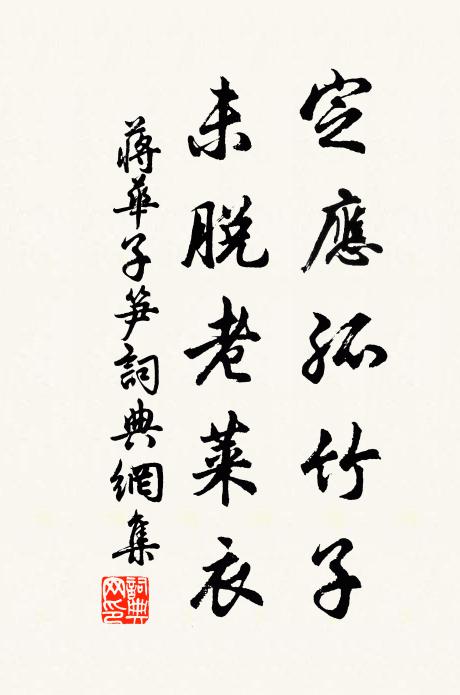 定應孤竹子
未脱老萊衣
蔣華子笋詞典網集
詞典网印